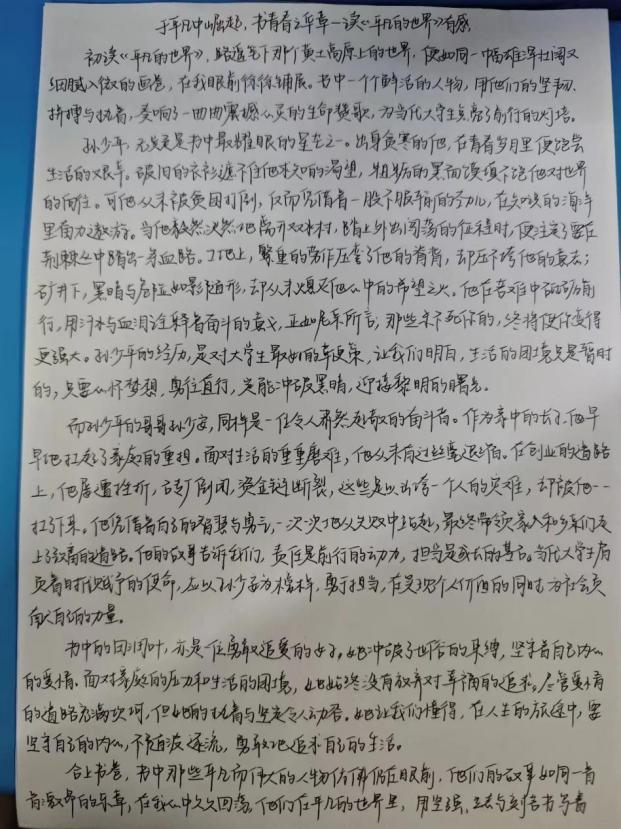 于平凡中崛起，书青春之华章—读《平凡的世界》有感
初读《平凡的世界》，路遥笔下那个黄土高原上的世界，便如同一幅雄浑壮阔又
细腻入微的画卷，在我眼前徐徐铺展。书中一个个鲜活的人物，用他们的坚韧、
拼搏与执着，奏响了一曲曲震撼心灵的生命赞歌，为当代大学生点亮了前行的灯塔。
孙少平，无疑是书中最耀眼的星辰之一。出身贫寒的他，在青春岁月里便饱尝
生活的艰辛。破旧的衣衫遮不住他求知的渴望，粗粝的黑面馍填不饱他对世界
的向往。可他从未被贫困打倒，反而凭借着一股不服输的劲儿，在知识的海洋
里奋力遨游。当他毅然决然地离开双水村，踏上外出闯荡的征程时，便注定了要在
荆棘丛中踏出一条血路。工地上，繁重的劳作压弯了他的脊背，却压不垮他的意志；
矿井下，黑暗与危险如影随形，却从未熄灭他心中的希望之火。他在苦难中砥砺前
行，用汗水与血泪诠释着奋斗的意义，正如尼采所言，那些杀不死你的，终将使你变得
更强大。孙少平的经历，是对大学生最好的鞭策，让我们明白，生活的困境只是暂时
的，只要心怀梦想，勇往直行，定能冲破黑暗，迎接黎明的曙光。
而孙少平的哥哥孙少安，同样是一位令人肃然起敬的奋斗者。作为家中的长子，他早
早地扛起了家庭的重担。面对生活的重重磨难，他从未有过丝毫退缩。在创业的道路
上，他屡遭挫折，砖厂倒闭，资金链断裂，这些足以击垮一个人的灾难，却被他一一
扛了下来。他凭借着自己的智慧与勇气，一次次地从失败中站起，最终带领家人和乡亲们走
上了致富的道路。他的故事告诉我们，责任是前行的动力，担当是成长的基石。当代大学生肩
负着时代赋予的使命，应以孙少安为榜样，勇于担当，在实现个人价值的同时，为社会贡
献自己的力量。
书中的田润叶，亦是一位勇敢追爱的女子。她冲破了世俗的束缚，坚守着自己内心
的爱情。面对家庭的压力和生活的困境，她始终没有放弃对幸福的追求。尽管爱情
的道路充满坎坷，但她的执着与坚定令人动容。她让我们懂得，在人生的旅途中，要
坚守自己的内心，不随波逐流，勇敢地追求自己的生活。
合上书卷，书中那些平凡而伟大的人物仿佛仍在眼前，他们的故事如同一首
首激昂的乐章，在我心中久久回荡。他们在平凡的世界里，用坚强、善与刻苦书写着